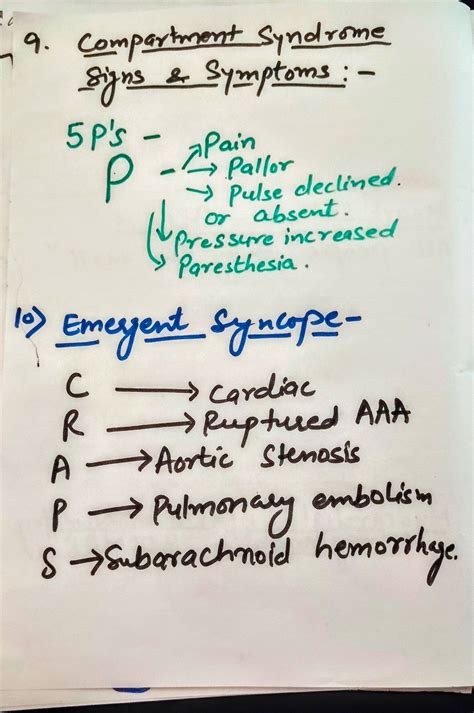 9. Compartment Syndrome
Signs & Symptoms :-
5 P's -
P - → Pain
→ Pallor
→ Pulse declined.
or absent.
→ Pressure increased
→ Paresthesia.
10) Emergent Syncope-
C → Cardiac
R → Ruptured AAA
A → Aortic Stenosis
P → Pulmonary embolism
S → Subarachnoid hemorrhage.